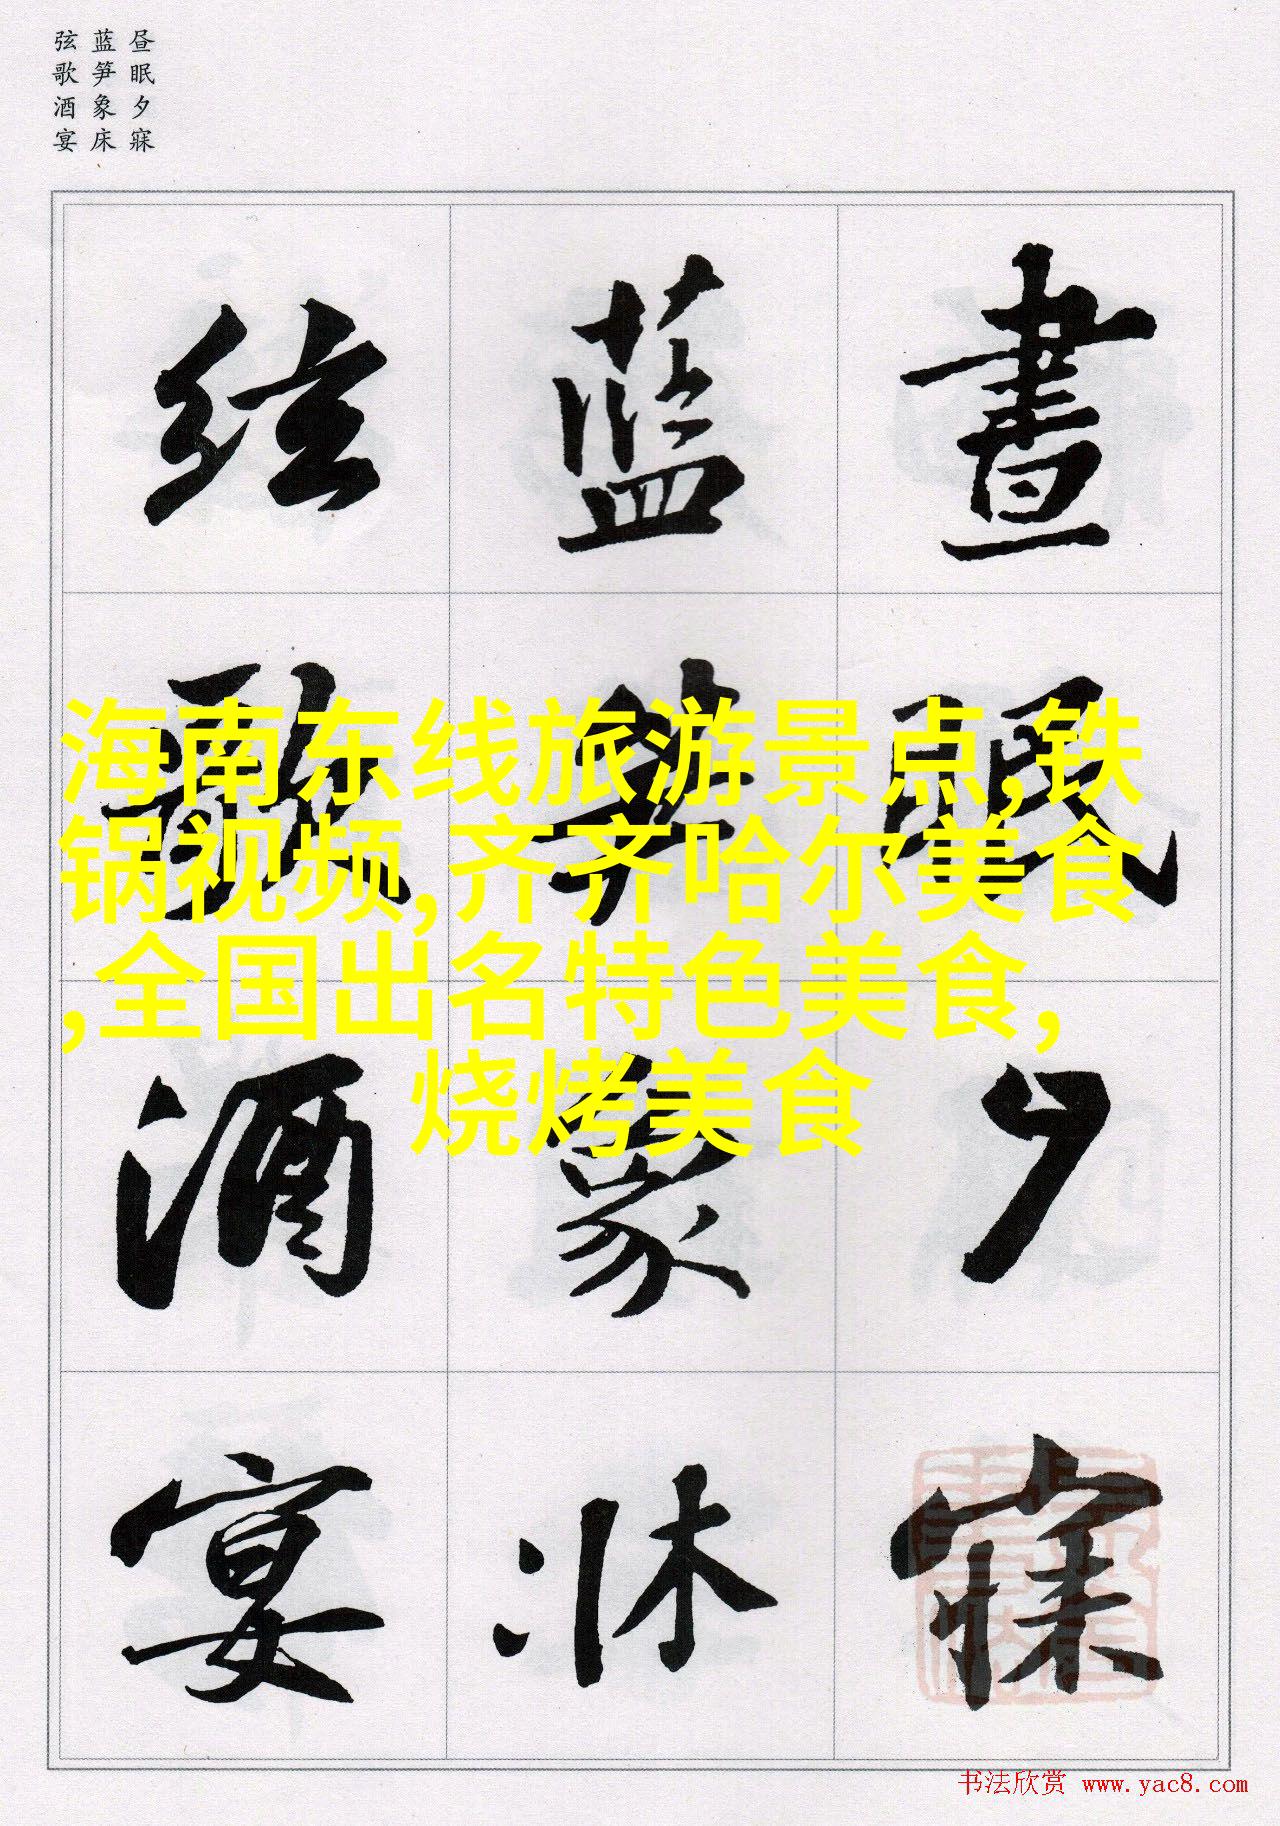 昼眠夕寐
蓝笋象床
弦歌酒宴
晝眠夕寐
蓝笋象牀
弦歌酒宴
海南东线旅游景点,铁
锅视频,齐齐哈尔美食
,全国出名特色美食,
烧烤美食
书法欣赏 www.yac8.com